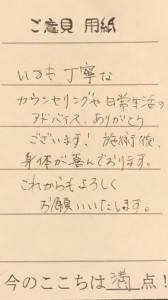 ご意見 用紙
いつも丁寧な
カウンセリングや日常生活の
アドバイス、ありがとう
ございます! 施術後、
身体が喜んでおります。
これからもよろしく
お願いいたします。
今のここちは満点!